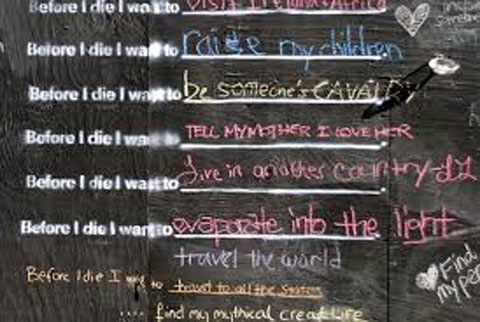 Before I die I want to visit Ireland & Africa
Before I die I want to raise my children
Before I die I want to be someone's CAVALRY
Before I die I want to TELL MY MOTHER I LOVE HER
Before I die I want to live in another country
Before I die I want to evaporate into the light
travel the world
Before I die I want to travel to all the
.... find my mythical creat life
Find
my per